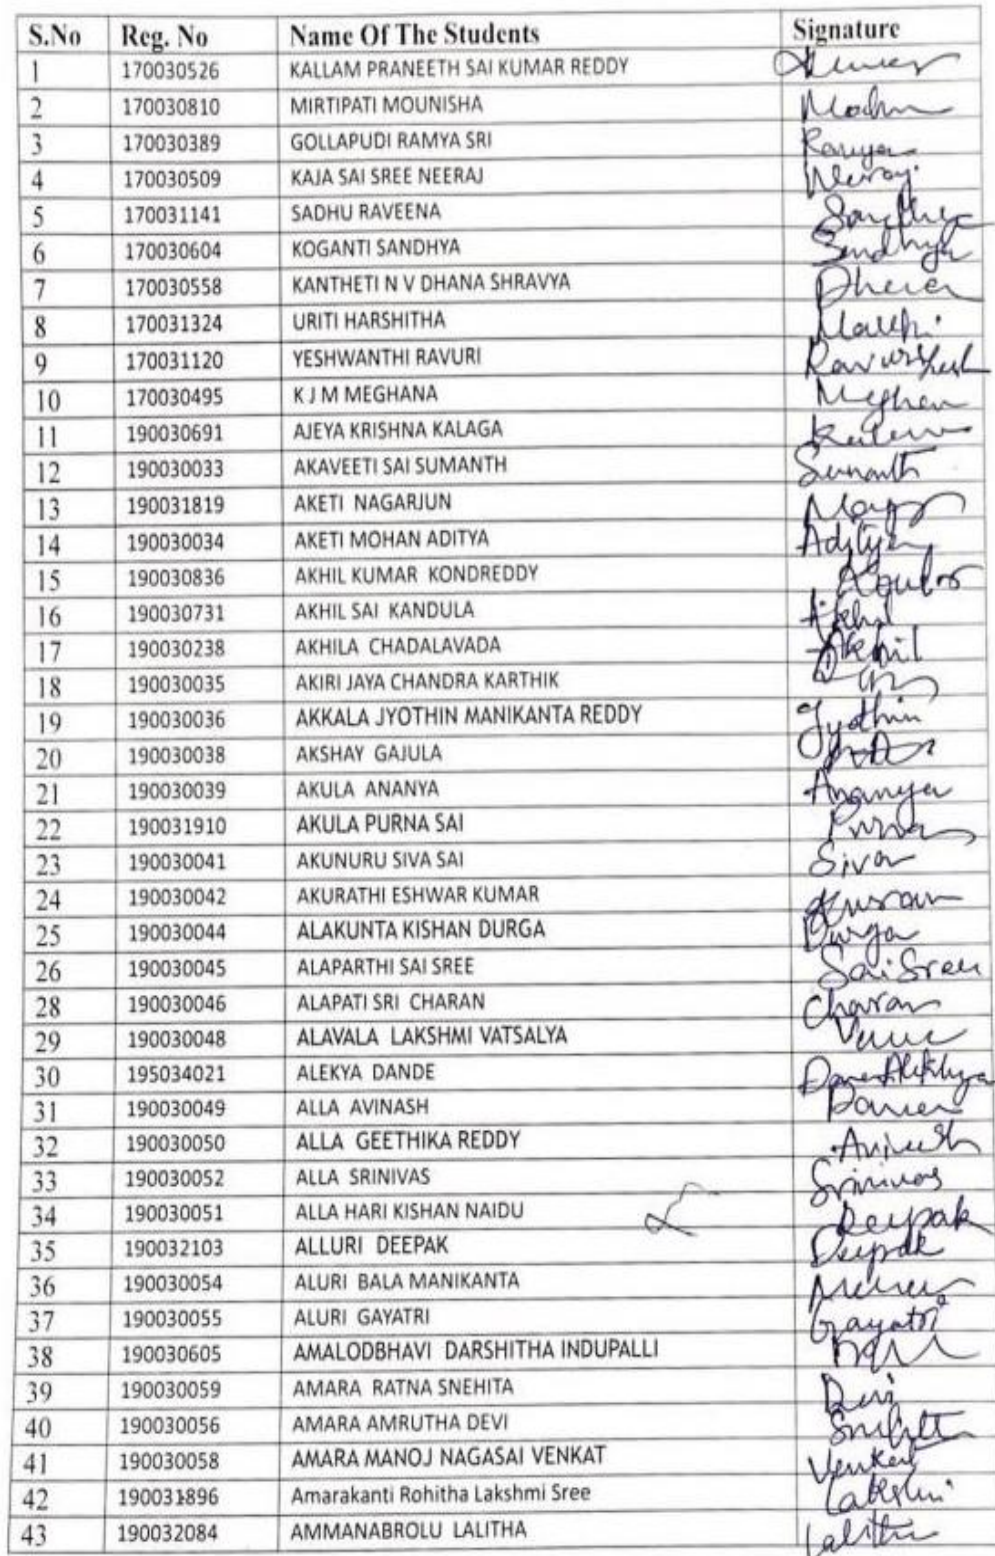 S.No Reg. No Name Of The Students Signature
1 170030526 KALLAM PRANEETH SAI KUMAR REDDY
2 170030810 MIRTIPATI MOUNISHA
3 170030389 GOLLAPUDI RAMYA SRI Ramya
4 170030509 KAJA SAI SREE NEERAJ Neeraj
5 170031141 SADHU RAVEENA
6 170030604 KOGANTI SANDHYA Sandhya
7 170030558 KANTHETI N V DHANA SHRAVYA
8 170031324 URITI HARSHITHA
9 170031120 YESHWANTHI RAVURI
10 170030495 K J M MEGHANA Meghan
11 190030691 AJEYA KRISHNA KALAGA
12 190030033 AKAVEETI SAI SUMANTH Sumanth
13 190031819 AKETI NAGARJUN
14 190030034 AKETI MOHAN ADITYA Aditya
15 190030836 AKHIL KUMAR KONDREDDY
16 190030731 AKHIL SAI KANDULA Akhil
17 190030238 AKHILA CHADALAVADA Akhil
18 190030035 AKIRI JAYA CHANDRA KARTHIK
19 190030036 AKKALA JYOTHIN MANIKANTA REDDY Jyothin
20 190030038 AKSHAY GAJULA
21 190030039 AKULA ANANYA Ananya
22 190031910 AKULA PURNA SAI Purna
23 190030041 AKUNURU SIVA SAI Siva
24 190030042 AKURATHI ESHWAR KUMAR
25 190030044 ALAKUNTA KISHAN DURGA Durga
26 190030045 ALAPARTHI SAI SREE Sai Sree
28 190030046 ALAPATI SRI CHARAN Charan
29 190030048 ALAVALA LAKSHMI VATSALYA
30 195034021 ALEKYA DANDE
31 190030049 ALLA AVINASH
32 190030050 ALLA GEETHIKA REDDY
33 190030052 ALLA SRINIVAS Srinivas
34 190030051 ALLA HARI KISHAN NAIDU Deepak
35 190032103 ALLURI DEEPAK Deepak
36 190030054 ALURI BALA MANIKANTA
37 190030055 ALURI GAYATRI Gayatri
38 190030605 AMALODBHAVI DARSHITHA INDUPALLI
39 190030059 AMARA RATNA SNEHITA Devi
40 190030056 AMARA AMRUTHA DEVI
41 190030058 AMARA MANOJ NAGASAI VENKAT Venkat
42 190031896 Amarakanti Rohitha Lakshmi Sree Lakshmi
43 190032084 AMMANABROLU LALITHA Lalitha